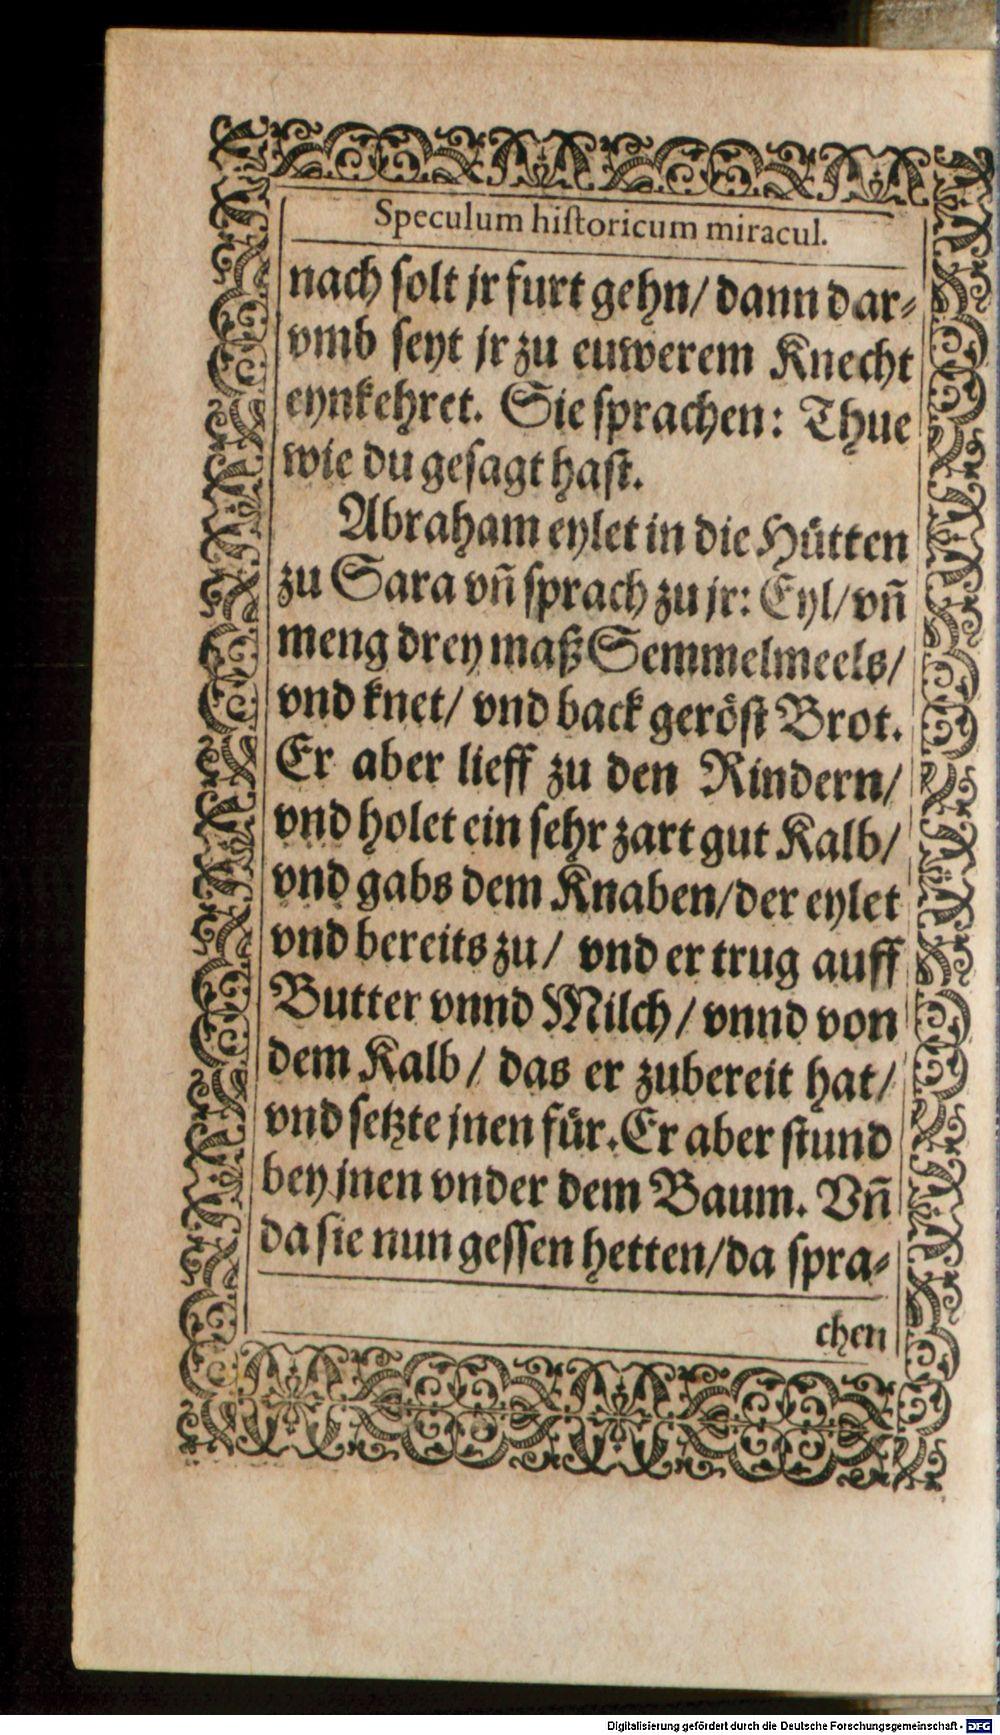 Speculum hiſtoricum miracul.
nach ſolt jr furt gehn/ dann dar⸗
vmb ſeyt jr zu euwerem Knecht
eynkehret. Sie ſprachen: Thue
wie du geſagt haſt.
Abraham eylet in die Huͤtten
zu Sara vñ ſprach zu jr: Eyl/ vñ
meng drey maß Semmelmeels/
vnd knet/ vnd back geroͤſt Brot.
Er aber lieff zu den Rindern/
vnd holet ein ſehr zart gut Kalb/
vnd gabs dem Knaben/ der eylet
vnd bereits zu/ vnd er trug auff
Butter vnnd Milch/ vnnd von
dem Kalb/ das er zubereit hat/
vnd ſetzte jnen fuͤr. Er aber ſtund
bey jnen vnder dem Baum. Vñ
da ſie nun geſſen hetten/ da ſpra⸗
chen
Digitalisierung gefördert durch die Deutsche Forschungsgemeinschaft - DFG